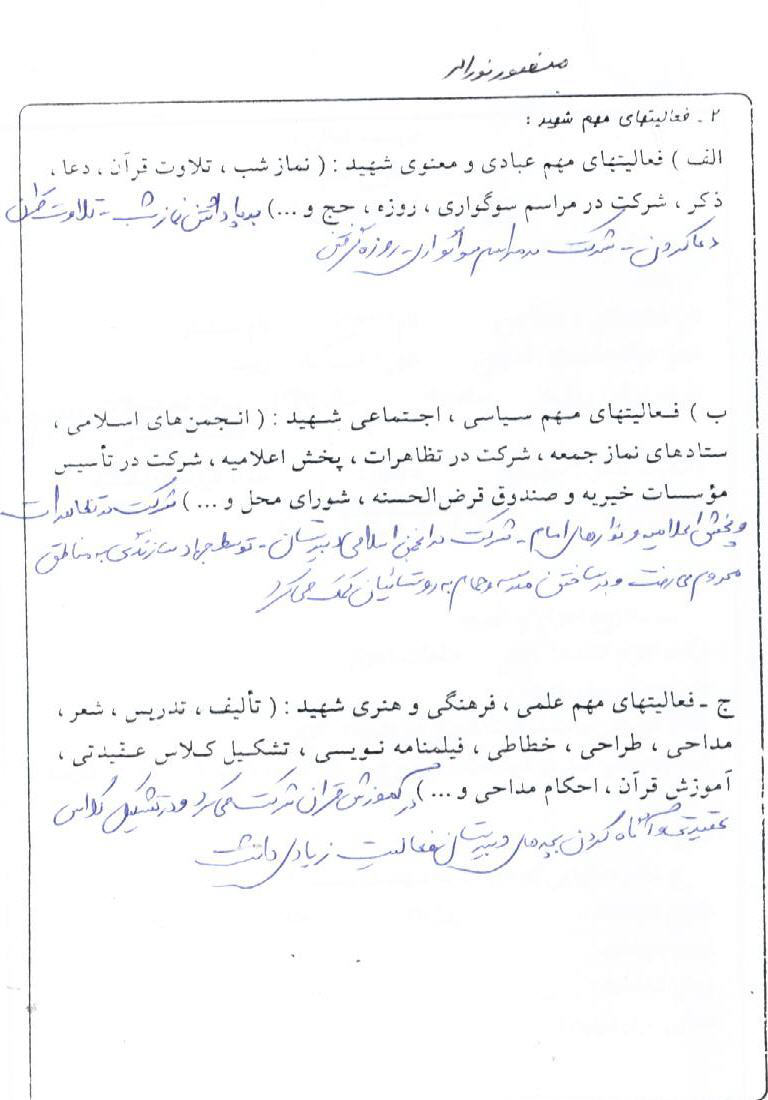 منصور نورالد
۲ ـ فعالیتهای مهم شهید :
الف ) فعالیتهای مهم عبادی و معنوی شهید : ( نماز شب ، تلاوت قرآن ، دعا ،
ذکر ، شرکت در مراسم سوگواری ، روزه ، حج و ...) بپا داشتن نماز شب - تلاوت قرآن
دعا کردن - شرکت در مراسم سوگواری - روزه گرفتن
ب ) فعالیتهای مهم سیاسی ، اجتماعی شهید : ( انجمن‌های اسلامی ،
ستادهای نماز جمعه ، شرکت در تظاهرات ، پخش اعلامیه ، شرکت در تأسیس
مؤسسات خیریه و صندوق قرض‌الحسنه ، شورای محل و ... ) شرکت در تظاهرات
و پخش اعلامیه و نوارهای امام - شرکت در انجمن اسلامی دبیرستان - توسط جهاد سازندگی به مناطق
محروم می رفت و در ساختن مدرسه و حمام به روستائیان کمک می کرد
ج ـ فعالیتهای مهم علمی ، فرهنگی و هنری شهید : ( تألیف ، تدریس ، شعر ،
مداحی ، طراحی ، خطاطی ، فیلمنامه نویسی ، تشکیل کلاس عقیدتی ،
آموزش قرآن ، احکام مداحی و ... ) در آموزش قران شرکت می کرد و در تشکیل کلاس
عقیدتی و آگاه کردن بچه های دبیرستان فعالیت زیادی داشت